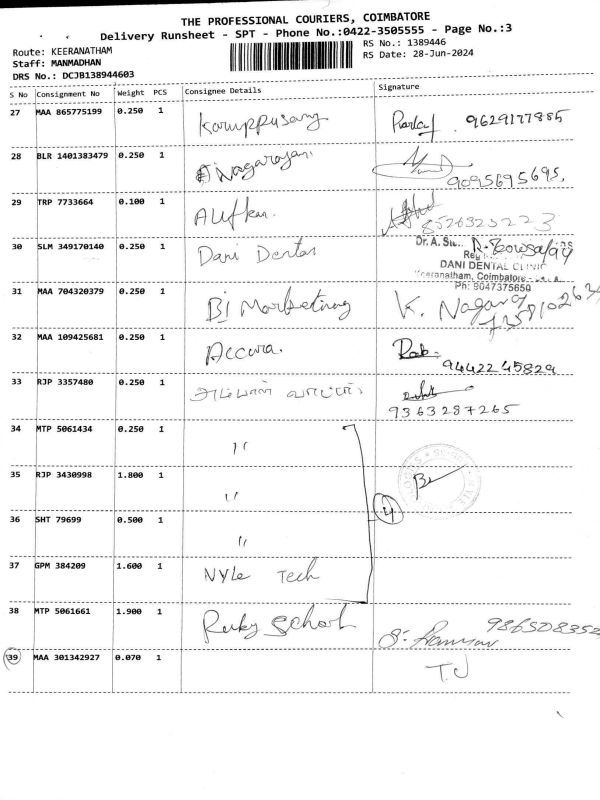 THE PROFESSIONAL COURIERS, COIMBATORE
Delivery Runsheet - SPT - Phone No.:0422-3505555 - Page No.:3
Route: KEERANATHAM
RS No.: 1389446
Staff: MANMADHAN
RS Date: 28-Jun-2024
DRS No.: DCJB138944603
S No Consignment No Weight PCS Consignee Details Signature
27 MAA 865775199 0.250 1 Karuppusamy 9629177885
28 BLR 1401383479 0.250 1 Nagarajan 9095695695.
29 TRP 7733664 0.100 1 8526325223
30 SLM 349170140 0.250 1 Dani Dental
Dr. A.
Reg
DANI DENTAL CLINIC
Keeranatham, Coimbatore -
Ph: 9047375650
31 MAA 704320379 0.250 1 BI Marketing K.
32 MAA 109425681 0.250 1 Accura. 9442245829
33 RJP 3357480 0.250 1
9363287265
34 MTP 5061434 0.250 1 "
35 RJP 3430998 1.800 1 "
4
36 SHT 79699 0.500 1 "
37 GPM 384209 1.600 1 Nyle Tech
38 MTP 5061661 1.900 1 Ruby School
39 MAA 301342927 0.070 1 T.J